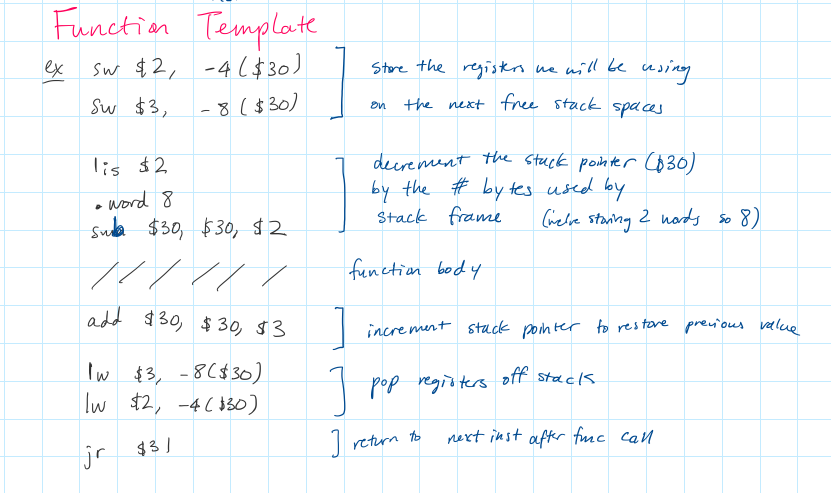 Function Template
ex sw $2, -4($30)
sw $3, -8($30)
store the registers we will be using
on the next free stack spaces
lis $2
.word 8
sub $30, $30, $2
decrement the stack pointer ($30)
by the # bytes used by
stack frame (we're storing 2 words so 8)
function body
add $30, $30, $3
increment stack pointer to restore previous value
lw $3, -8($30)
lw $2, -4($30)
pop registers off stack
jr $31
return to next inst after func call